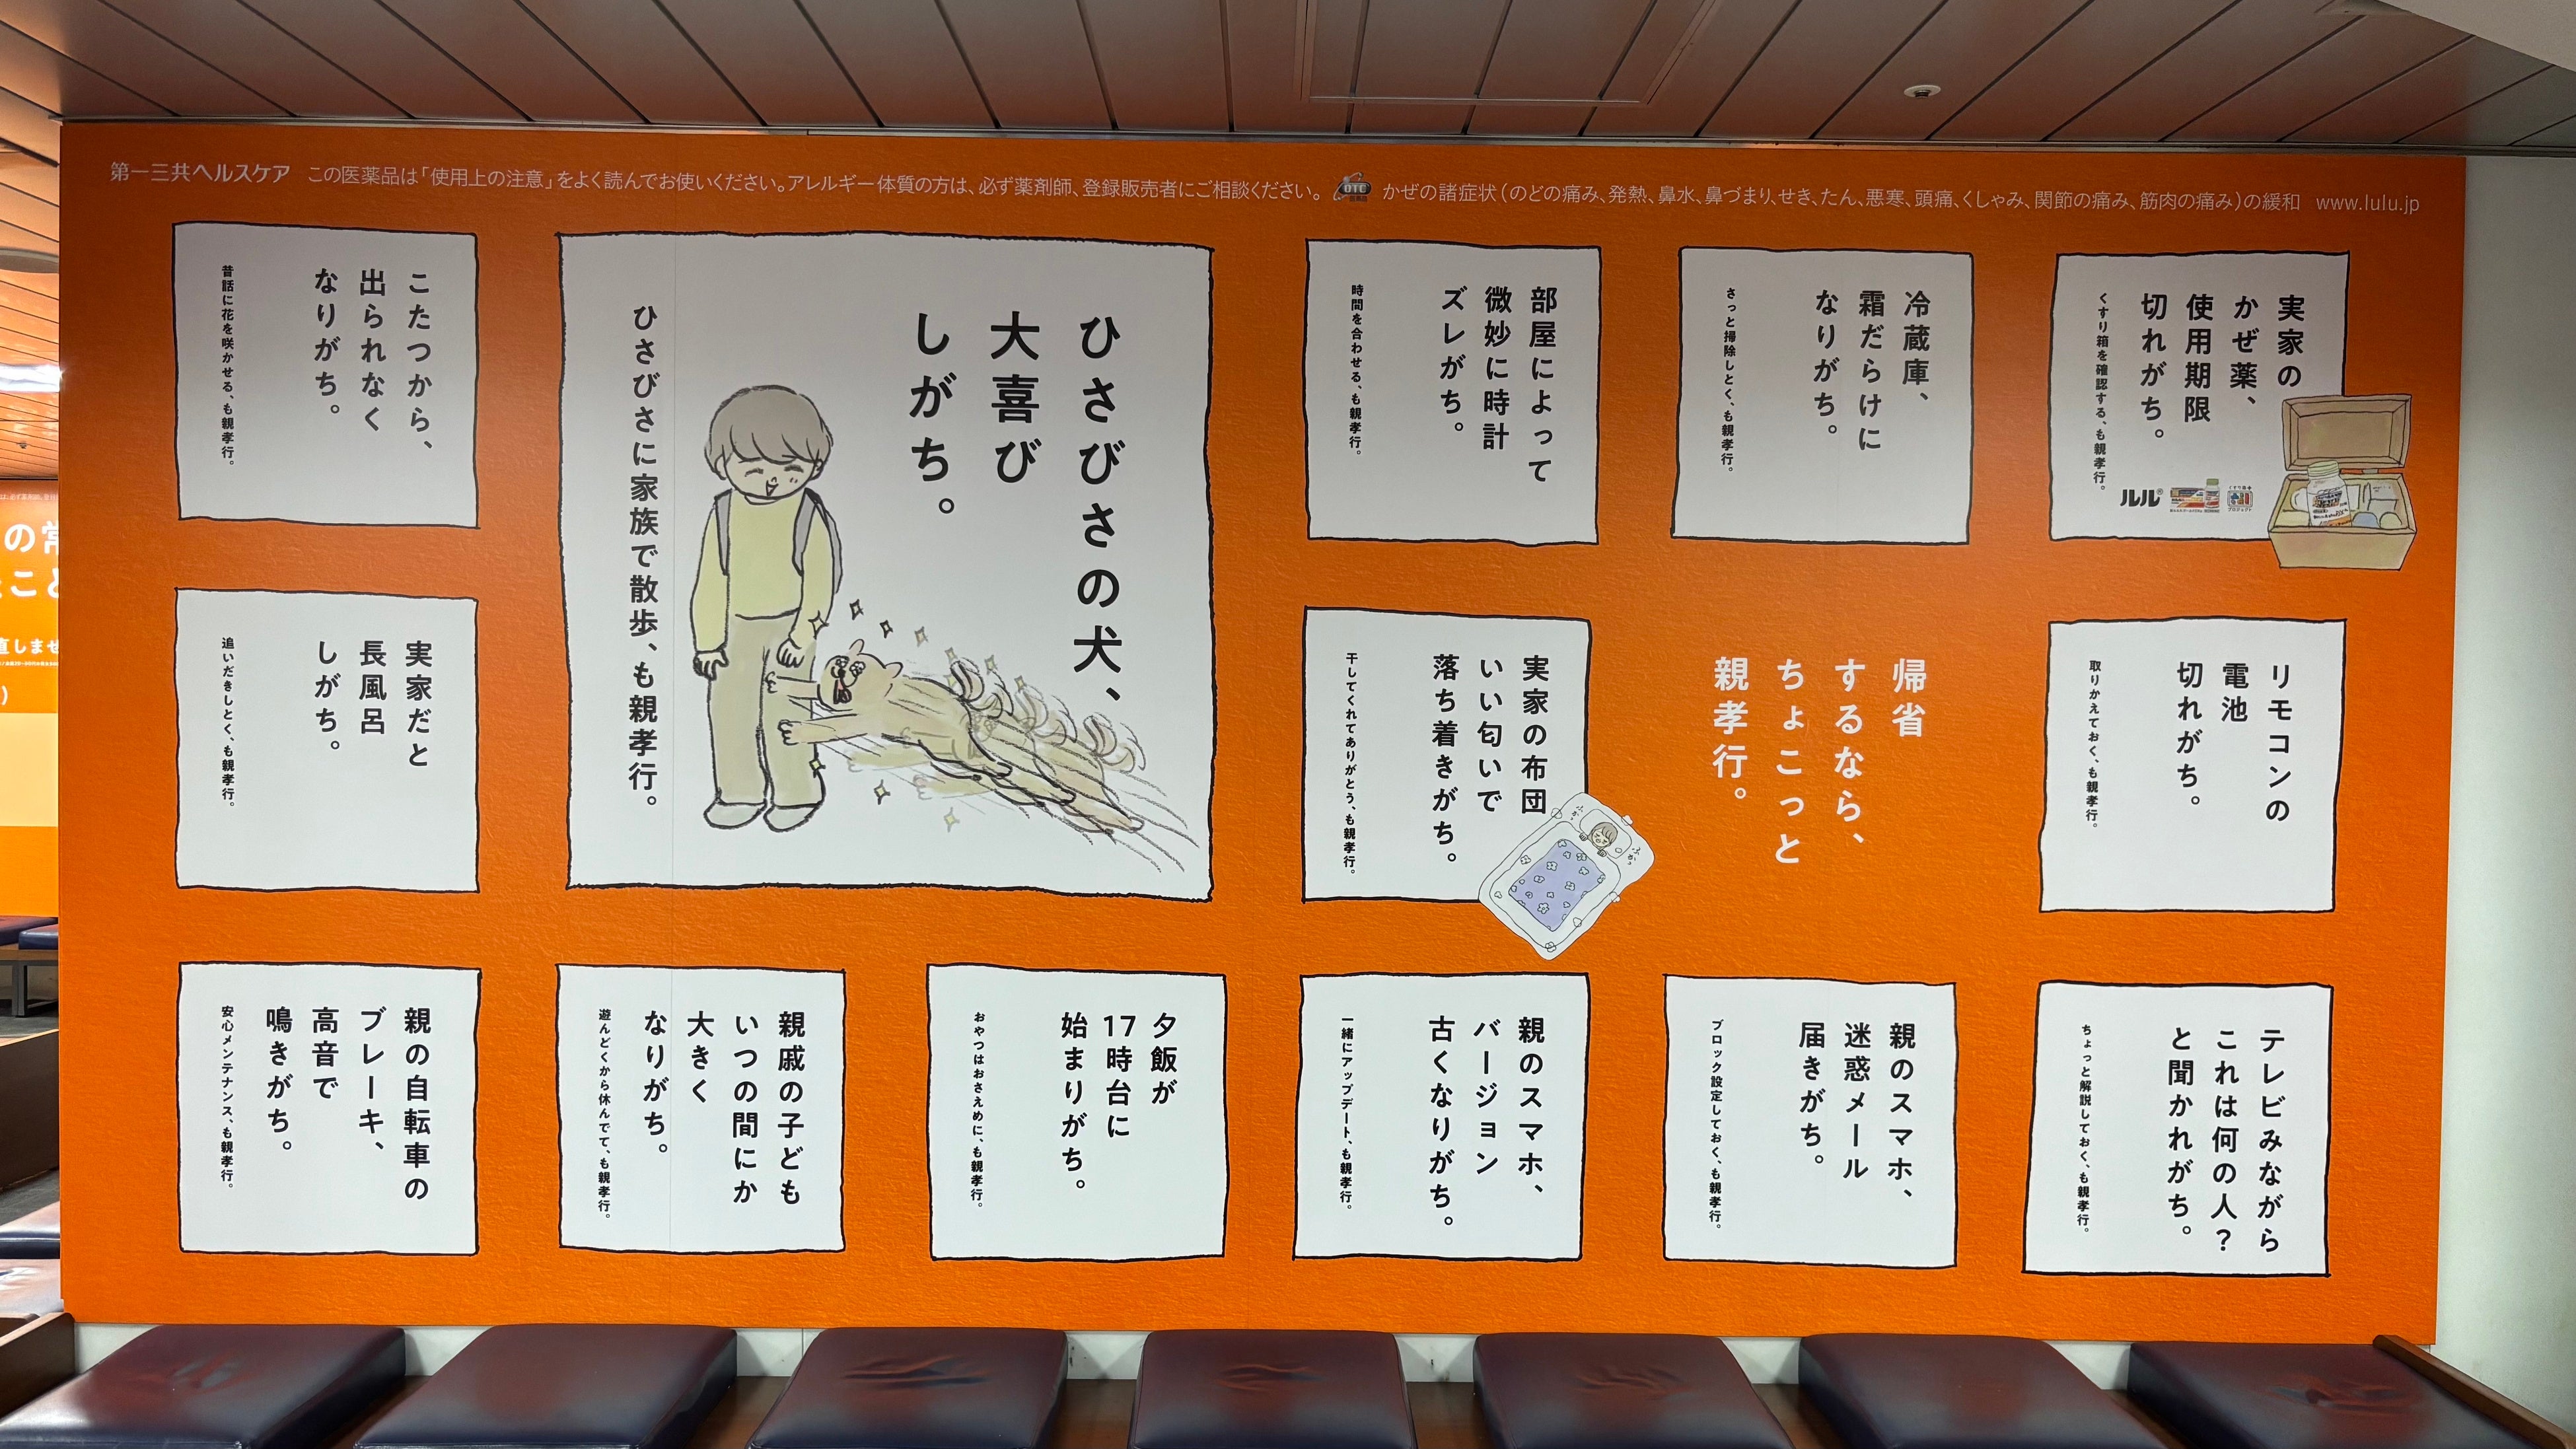 第一三共ヘルスケア この医薬品は「使用上の注意」をよく読んでお使いください。アレルギー体質の方は、必ず薬剤師、登録販売者にご相談ください。 OTC 医薬品 かぜの諸症状(のどの痛み、発熱、鼻水、鼻づまり、せき、たん、悪寒、頭痛、くしゃみ、関節の痛み、筋肉の痛み)の緩和 www.lulu.jp
実家の
かぜ薬、
使用期限
切れがち。
くすり箱を確認する、も親孝行。
ルル®
くすり箱
プロジェクト
冷蔵庫、
霜だらけに
なりがち。
さっと掃除しとく、も親孝行。
部屋によって
微妙に時計
ズレがち。
時間を合わせる、も親孝行。
ひさびさの犬、
大喜び
しがち。
ひさびさに家族で散歩、も親孝行。
こたつから、
出られなく
なりがち。
昔話に花を咲かせる、も親孝行。
リモコンの
電池
切れがち。
取りかえておく、も親孝行。
帰省
するなら、
ちょこっと
親孝行。
実家の布団
いい匂いで
落ち着きがち。
干してくれてありがとう、も親孝行。
ふかっ
ふかっ
実家だと
長風呂
しがち。
追いだきしとく、も親孝行。
テレビみながら
これは何の人？
と聞かれがち。
ちょっと解説しておく、も親孝行。
親のスマホ、
迷惑メール
届きがち。
ブロック設定しておく、も親孝行。
親のスマホ、
バージョン
古くなりがち。
一緒にアップデート、も親孝行。
夕飯が
17時台に
始まりがち。
おやつはおさえめに、も親孝行。
親戚の子ども
いつの間にか
大きく
なりがち。
遊んどくから休んでて、も親孝行。
親の自転車の
ブレーキ、
高音で
鳴きがち。
安心メンテナンス、も親孝行。
の常
こと
直しませ